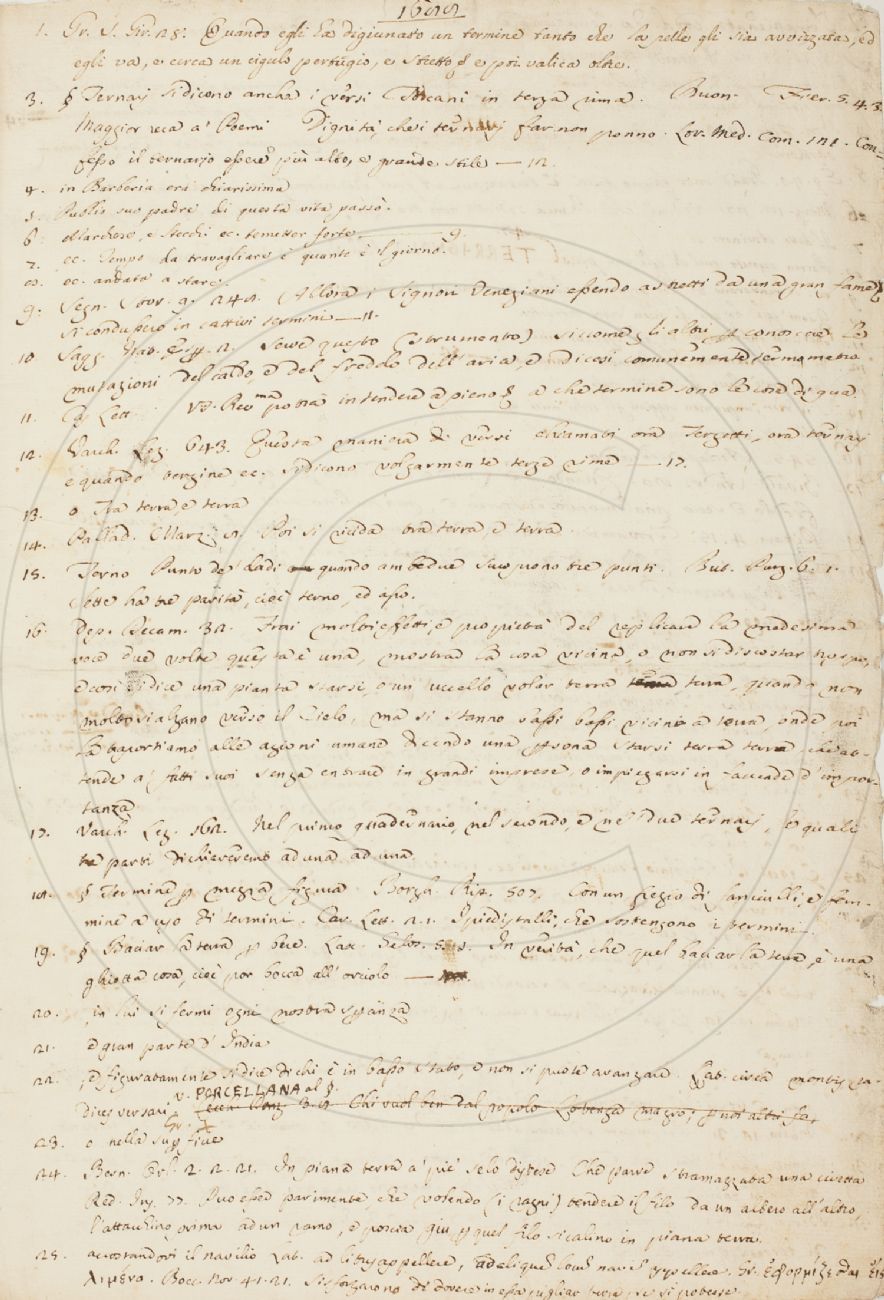 1. Gr. S. Gir. 28. Quando egli ha digiunato un termine tanto che la pelle gli sia avvizzata, ed
egli va, e cerca un cigulo pertugio, e stretto § e poi valica oltre.
3. § Ternarj si dicono ancha i versi Toscani in terza rima. Buon. Fier. 5. 4. 3.
Maggior reca a' Poemi Dignità, che i ternarj far non ponno. Lor. Med. Com. 121. Con-
fesso il ternario essere più alto, e grande stile — 12.
4. in Barberia era chiarissima
5. Publio suo padre di questa vita passò.
6. Marchese, e Stecchi ec. temetter forte — 9.
7. ec. Tempo da travagliare è quanto è il giorno.
8. ec. andata a stare.
9. Segn. Stor. 9. 248. Allora i Signori Veneziani essendo astretti da una gran fame
si condussero in cattivi termini — 11.
10 Sagg. nat. esp. 2. Serve questo (strumento) siccome gli altri p conoscere le
mutazioni del caldo, e del freddo dell'aria, e dicesi comunemente termometro
11. Lett. V. S. Rev.ma potrà intendere a pieno § a che termine sono le cose di qua
12. Varch. Lez. 643. Questa maniera di versi chiamati ora Terzetti, ora ternarj
e quando terzine ec. si dicono volgarmente terze rime — 17.
13. o Tra terra, e terra
14. Pallad. Marz. Poi si rada ora terra, e terra
15. Terno Punto de' Dadi quando ambedue scuoprono tre punti. But. Purg. 6. 1.
Sette ha tre parità, cioè terno, ed aso.
16. Dep. Decam. 32. Trai molti effetti, e proprietà del replicare la medesima
voce due volte questa è una, mostrar la cosa vicina, o non si discostar troppo,
e così si dice una pianta starsi, o un uccello volar terra terra, quando non
molto si alzano verso il Cielo, ma si stanno bassi bassi vicino a terra, onde poi
la trasportiamo alle azioni umane dicendo una psona starsi terra terra che at-
tende a' fatti suoi senza entrare in grandi imprese, o impiegarsi in faccende d'impor-
tanza
17. Varch. Lez. 162. Nel primo quadernario, nel secondo, e ne' due ternarj, le quali
parti dichiareremo ad una ad una.
18. § Termine p mezza figura Borgh. Rip. 507. Con un fregio di fanciulli, e fem-
mine a uso di termini. Car. Lett. 2. 1. I piedistalli, che sostengono i termini.
19. § Baciar la terra p bere. Lasc. Gelos. 5. In verità, che quel baciar la terra, è una
ghiotta cosa, cioè, por bocca all'orciolo —
20. in lui si fermi ogni nostra speranza
21. e gran parte d'India
22. , e figuratamente si dice di chi è in basso stato, e non si puote avanzare. Lat. circa
v. PORCELLANA al §.
Chi vuol ben dal popolo
23. o nella
24. Bern. Orl. 2. 2. 21. In piana terra a' piè se lo distese Che parve stramazzata una civetta
Red. Ins. 77. Può esser parimente, che volendo (i ragni) tendere il filo da un albero all'altro,
l'attacchino prima ad un ramo, e poscia giù p quel filo si calino in piana terra.
25. accostandovi il navilio Lat. ad litus appellere, Gr.
Bocc. Nov. 41. 21. Si sforzarono di dovere in essa pigliar terra, se si potesse.